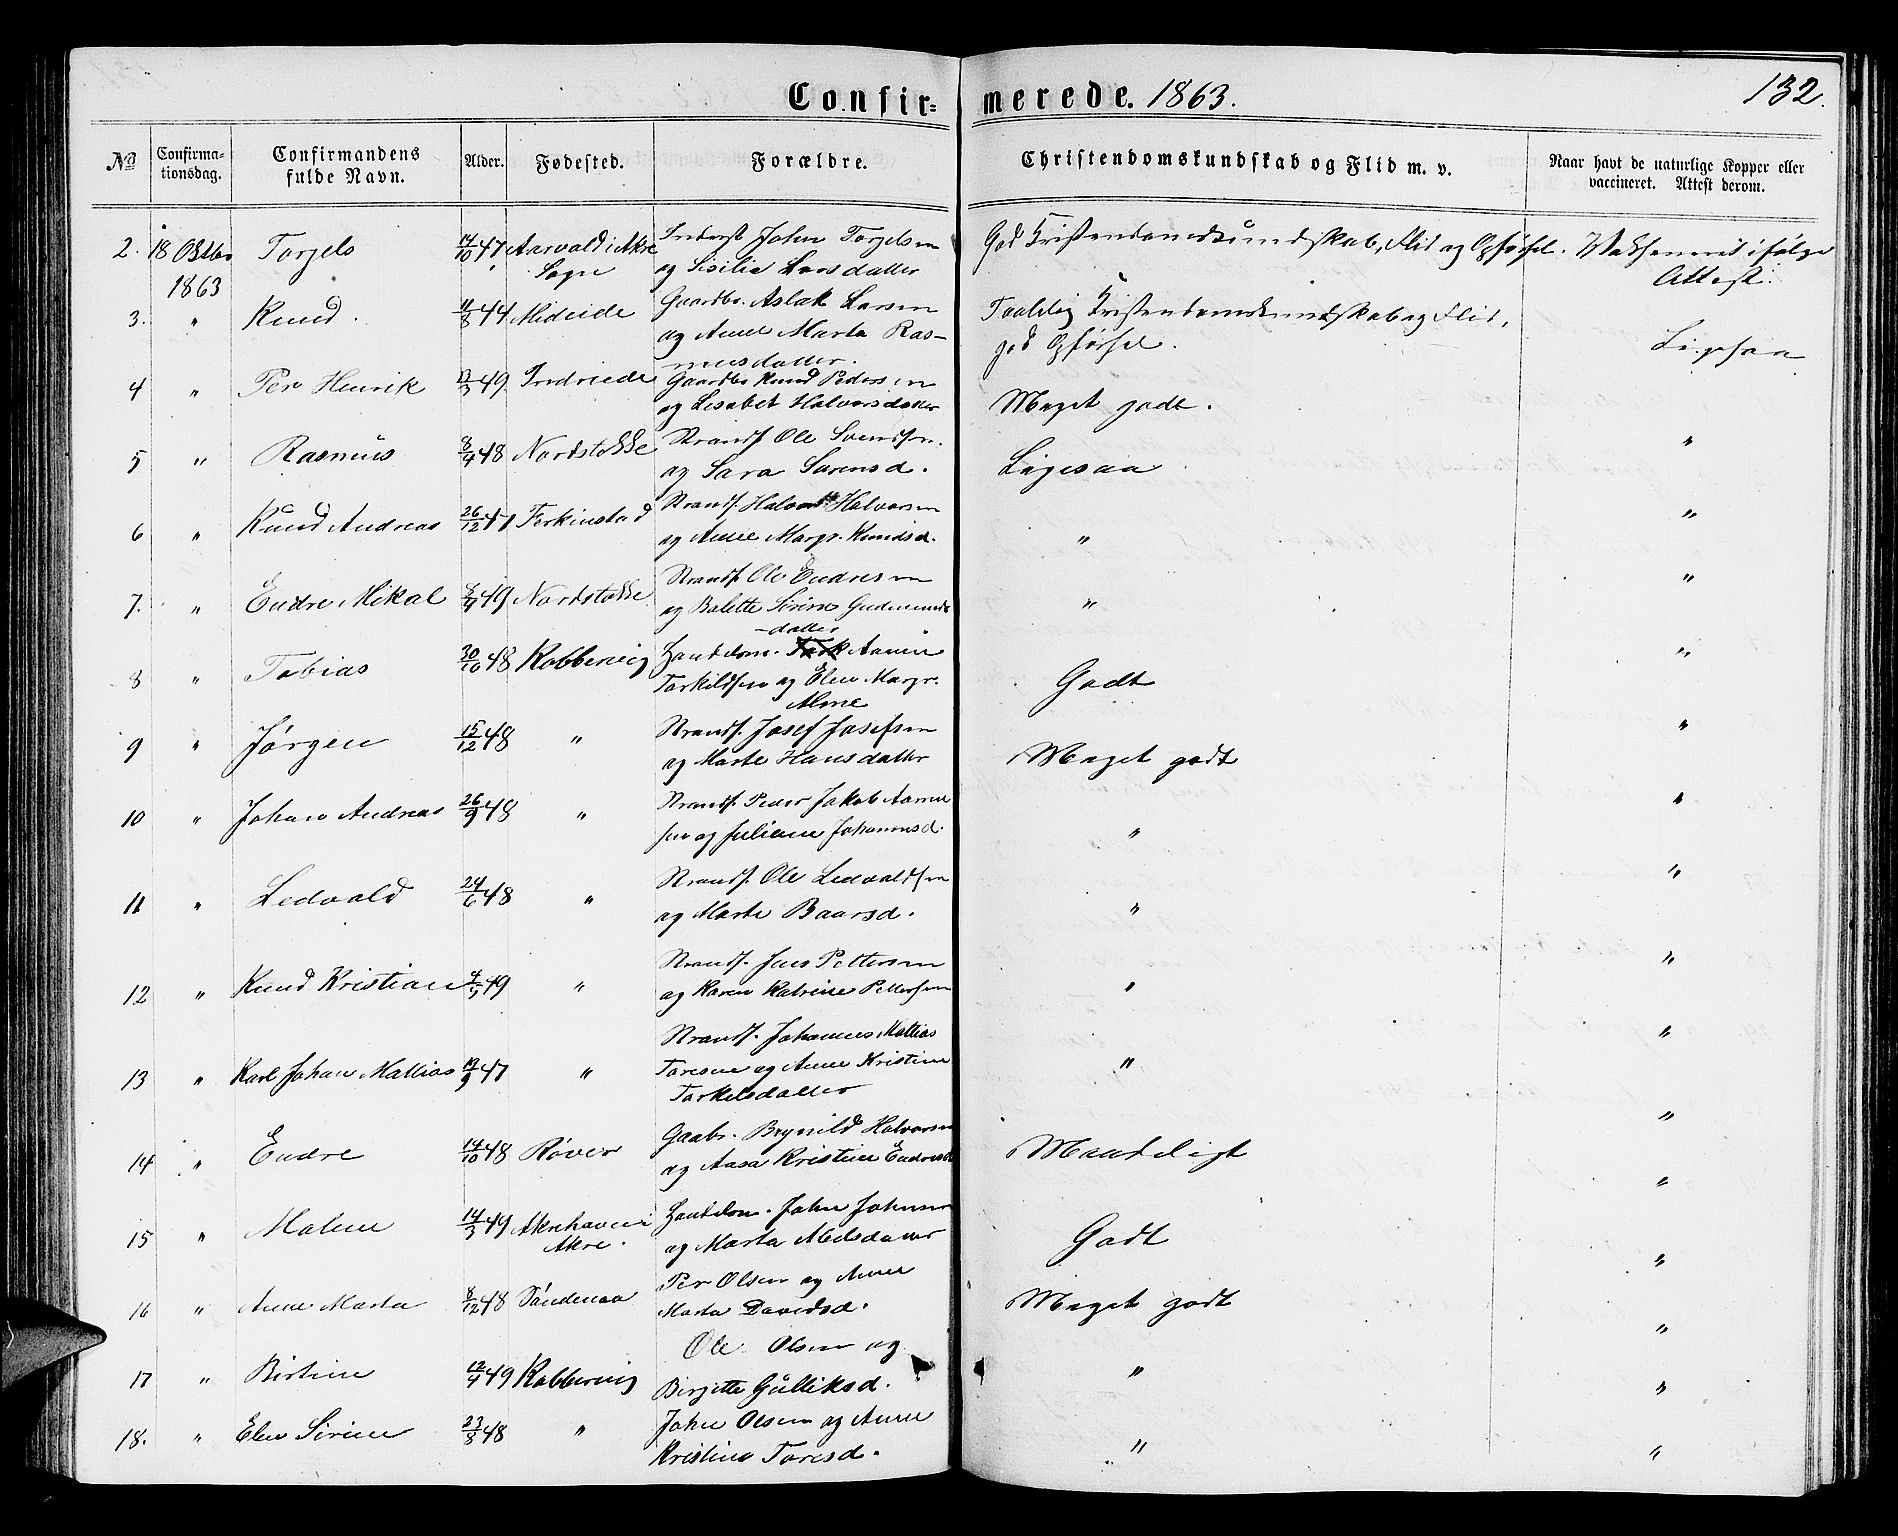 Confir= merede. 1863. 132.
No Confirma-tionsdag. Confirmandens fulde Navn. Alder. Fødested. Forældre. Christendomskundskab og Flid m. v. Naar havt de naturlige Kopper eller vaccineret. Attest derom.
2. 18 Oktbr Torgels 47 Aarvald i Akre Inderst John Torgelsen God Kristendomskundskab, Flid og Opførsel. Vaksineret ifølge
1863 Sogn og Sisilia Larsdatter Attest.
3. " Knud. 8 44 Mideide Gaardbr. Aslak Larsen Taalelig Kristendomskundskab og Flid,
og Anne Marta Ras- god Opførsel. Ligesaa
musdatter.
4 " Per Henrik 49. Gaardbr Knud Pedersen
og Lisabet Halvorsdatter Meget godt.
5 " Rasmus 8/4 48 Nordstokke Strands. Ole Svendsen. "
og Sara Sørensd. Ligesaa
6 " Knud Andreas 26/12 47 Ferkinstad Strands. Halvor Halvorsen "
og Anne Margr. Knudsd. "
7. " Endre Mikal 49 Nordstokke Strands. Ole Endresen "
og Balette Sirine Gudmunds "
-datter
8 " Tobias 30/10 48 Kobbervig Huusm. Aanen "
Torkildsen og Elen Margr. Godt
9 " Jørgen 15/12 48 " Strands. Josef Josefsen "
og Marte Hansdatter Meget godt
10 " Johan Andreas 26/9 48 " Strands. Peder Jakob Aanen "
sen og Juliane Johannesd. "
11 " Ledvald 24/6 48 " Strands. Ole Ledvaldsen "
og Marte Baarsd. "
12 " Knud Kristian 4/5 49 " Strands. Jens Pettersen "
og Karen Katrine Pettersen "
13 " Karl Johan Mattias 47 " Strands. Johannes Mattias "
Toresen og Anne Kristine "
Torkelsdatter
14 " Endre 14/10 48 Røver Gaabr. Brynild Halvorsen "
og Aasa Kristine Endresd Maadeligt
15 " Malene 14/3 49 Akrehavn i John Johnsen "
Akre. og Marta Abelsdatter Godt
16 " Anne Marta 8/12 48 Søndenaa Per Olsen og Anne "
Marta Davidsd. Meget godt
17 " Bertine 12/4 49 Kobbervig Ole Olsen og "
Birgitte Gulliksd. "
18. " Elen Sirine 23/8 48 " John Olsen og Anne "
Kristine Toresd. "